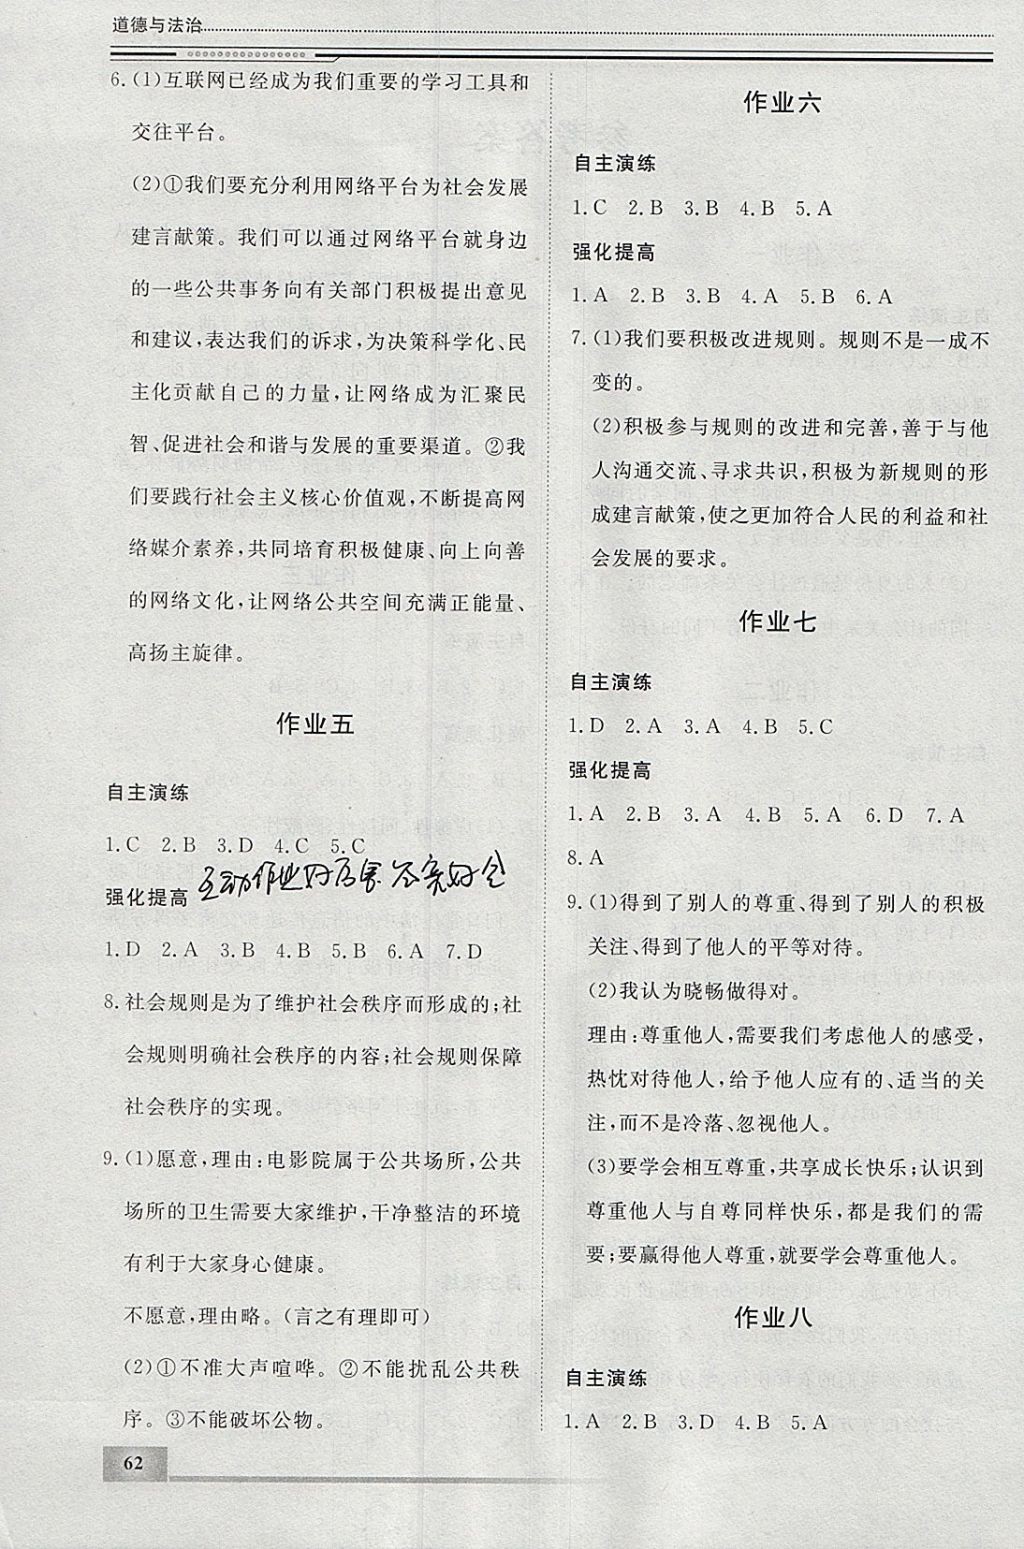 道德与法治
6.(1)互联网已经成为我们重要的学习工具和
交往平台。
(2)①我们要充分利用网络平台为社会发展
建言献策。我们可以通过网络平台就身边
的一些公共事务向有关部门积极提出意见
和建议,表达我们的诉求,为决策科学化、民
主化贡献自己的力量,让网络成为汇聚民
智、促进社会和谐与发展的重要渠道。②我
们要践行社会主义核心价值观,不断提高网
络媒介素养,共同培育积极健康、向上向善
的网络文化,让网络公共空间充满正能量、
高扬主旋律。
作业五
自主演练
1.C 2.B 3.D 4.C 5.C
强化提高
1.D 2.A 3.B 4.B 5.B 6.A 7.D
8.社会规则是为了维护社会秩序而形成的;社
会规则明确社会秩序的内容;社会规则保障
社会秩序的实现。
9.(1)愿意,理由:电影院属于公共场所,公共
场所的卫生需要大家维护,干净整洁的环境
有利于大家身心健康。
不愿意,理由略。(言之有理即可)
(2)①不准大声喧哗。②不能扰乱公共秩
序。③不能破坏公物。
62
作业六
自主演练
1.C 2.B 3.B 4.B 5.A
强化提高
1.A 2.B 3.B 4.A 5.B 6.A
7.(1)我们要积极改进规则。规则不是一成不
变的。
(2)积极参与规则的改进和完善,善于与他
人沟通交流、寻求共识,积极为新规则的形
成建言献策,使之更加符合人民的利益和社
会发展的要求。
作业七
自主演练
1.D 2.A 3.A 4.B 5.C
强化提高
1.A 2.B 3.A 4.B 5.A 6.D 7.A
8.A
9.(1)得到了别人的尊重、得到了别人的积极
关注、得到了他人的平等对待。
(2)我认为晓畅做得对。
理由:尊重他人,需要我们考虑他人的感受,
热忱对待他人,给予他人应有的、适当的关
注,而不是冷落、忽视他人。
(3)要学会相互尊重,共享成长快乐;认识到
尊重他人与自尊同样快乐,都是我们的需
要;要赢得他人尊重,就要学会尊重他人。
作业八
自主演练
1.A 2.B 3.D 4.B 5.A